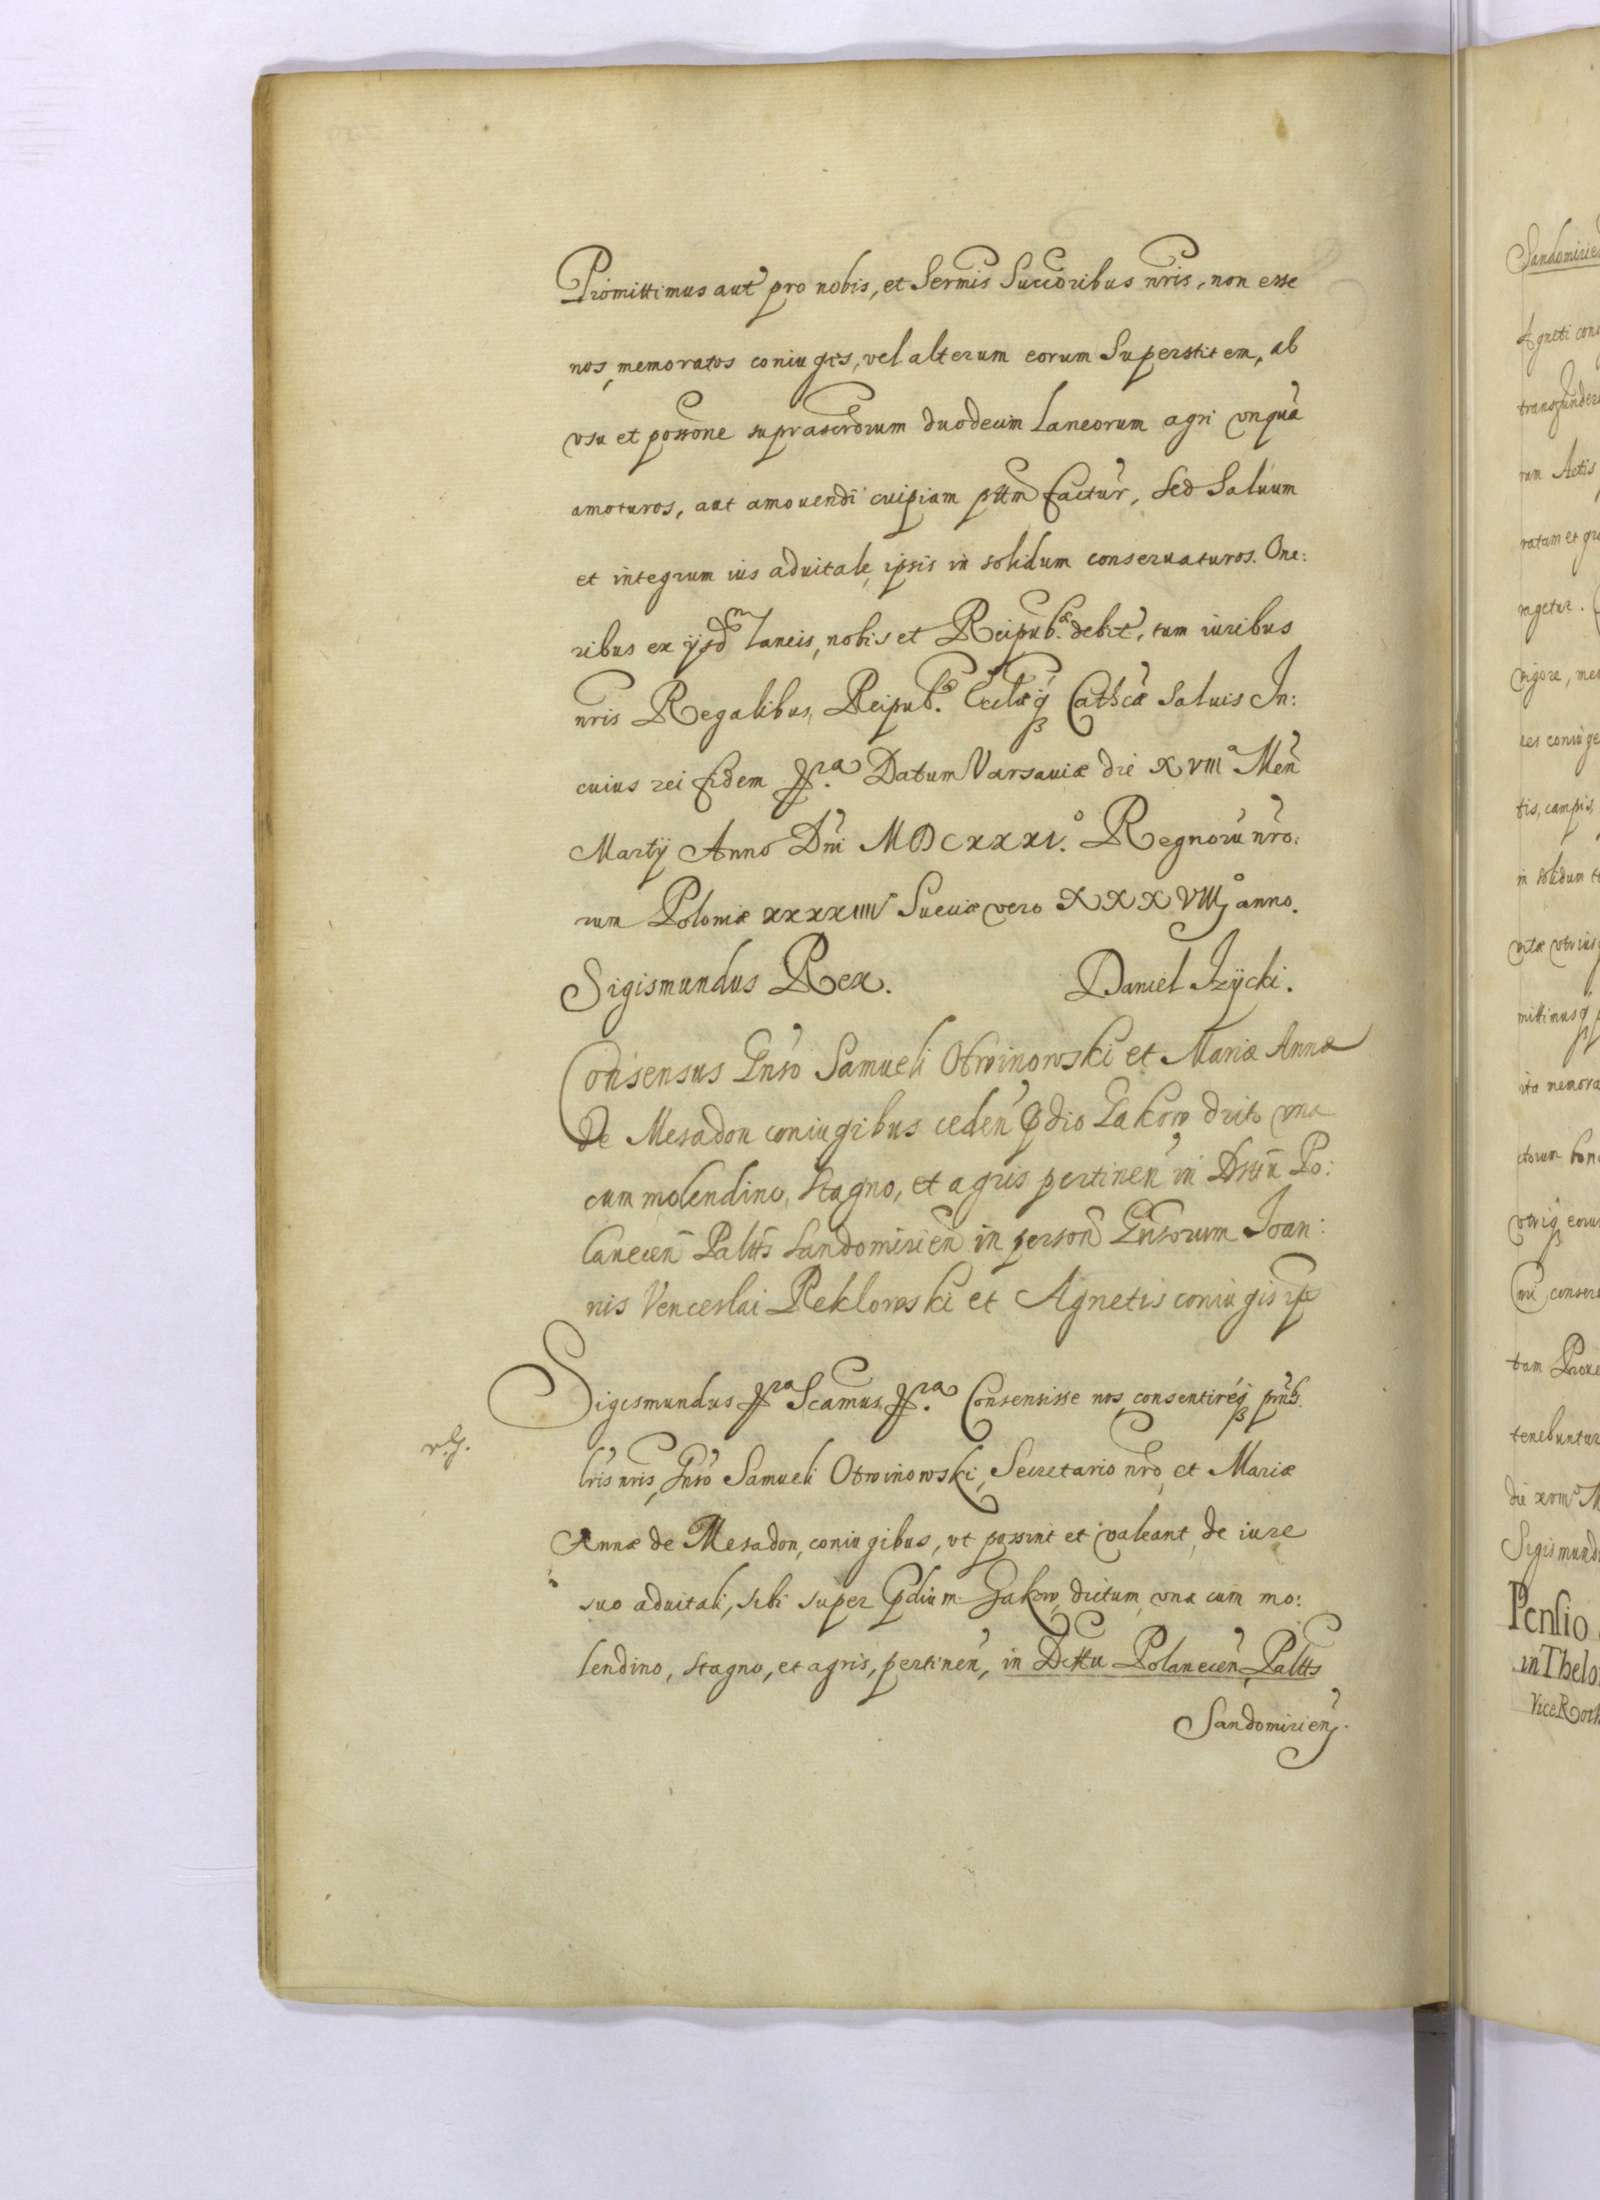 Promittimus aut pro nobis, et Sermis Succoribus nris, non esse
nos, memoratos coniuges, vel alterum eorum Superstitem, ab
vsu et possone suprascrorum duodecim laneorum agri vnqua
amoturos, aut amouendi cuipiam pttm factur, sed Saluum
et integrum ius aduitale, ipsis in solidum conseruaturos. One:
ribus ex ijsdm laneis, nobis et Reipub. debit, tum iuribus
nris Regalibus, Reipub. Ecclæq Cathcæ Saluis In:
cuius rei fidem pra. Datum Varsauiæ die XVIIIa Men
Martij Anno Dni MDCXXXI.o Regnoru nro:
rum Poloniæ xxxxiiii Sueciæ vero XXXVIIIo anno.
Sigismundus Rex. Daniel Izycki.
Consensus Gnso Samueli Otwinowski et Mariæ Annæ
de Mesadon coniugibus ceden Prdio Gakow dicto vna
cum molendino, stagno, et agris pertinen in Dsttu Po:
lanecen Paltts Sandomirien in person Gnsorum Joan:
nis Venceslai Reklowski et Agnetis coniugis
Sigismundus pra Scamus pra. Consensisse nos, consentireq pntib.
lris nris, Gnso Samueli Otwinowski, Secretario nro, et Mariæ
Annæ de Mesadon, coniugibus, vt possint et valeant, de iure
suo aduitali, sibi super Prdium Gakow, dictum, vna cum mo:
lendino, stagno, et agris, pertinen, in Dsttu Polanecen, Paltts
Sandomirien.
Sandomirien
Agneti coni
transfunder
rum Actis
ratam et gra
vigore, me
tis, campis,
in solidum
vitæ vtrius
mittimusq
ita memora
vtriq eoru
conser
tam
tenebuntur
die xviiia M
Sigismund
Pensio
in Thelo